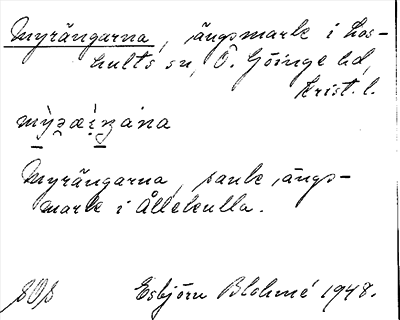 Myrängarna, ängsmark i Los-
hults sn, Ö. Göinge hd,
Krist. l.
Myrängarna, sank ängs-
mark i Ållekulla.
808 Esbjörn Blohmé 1948.